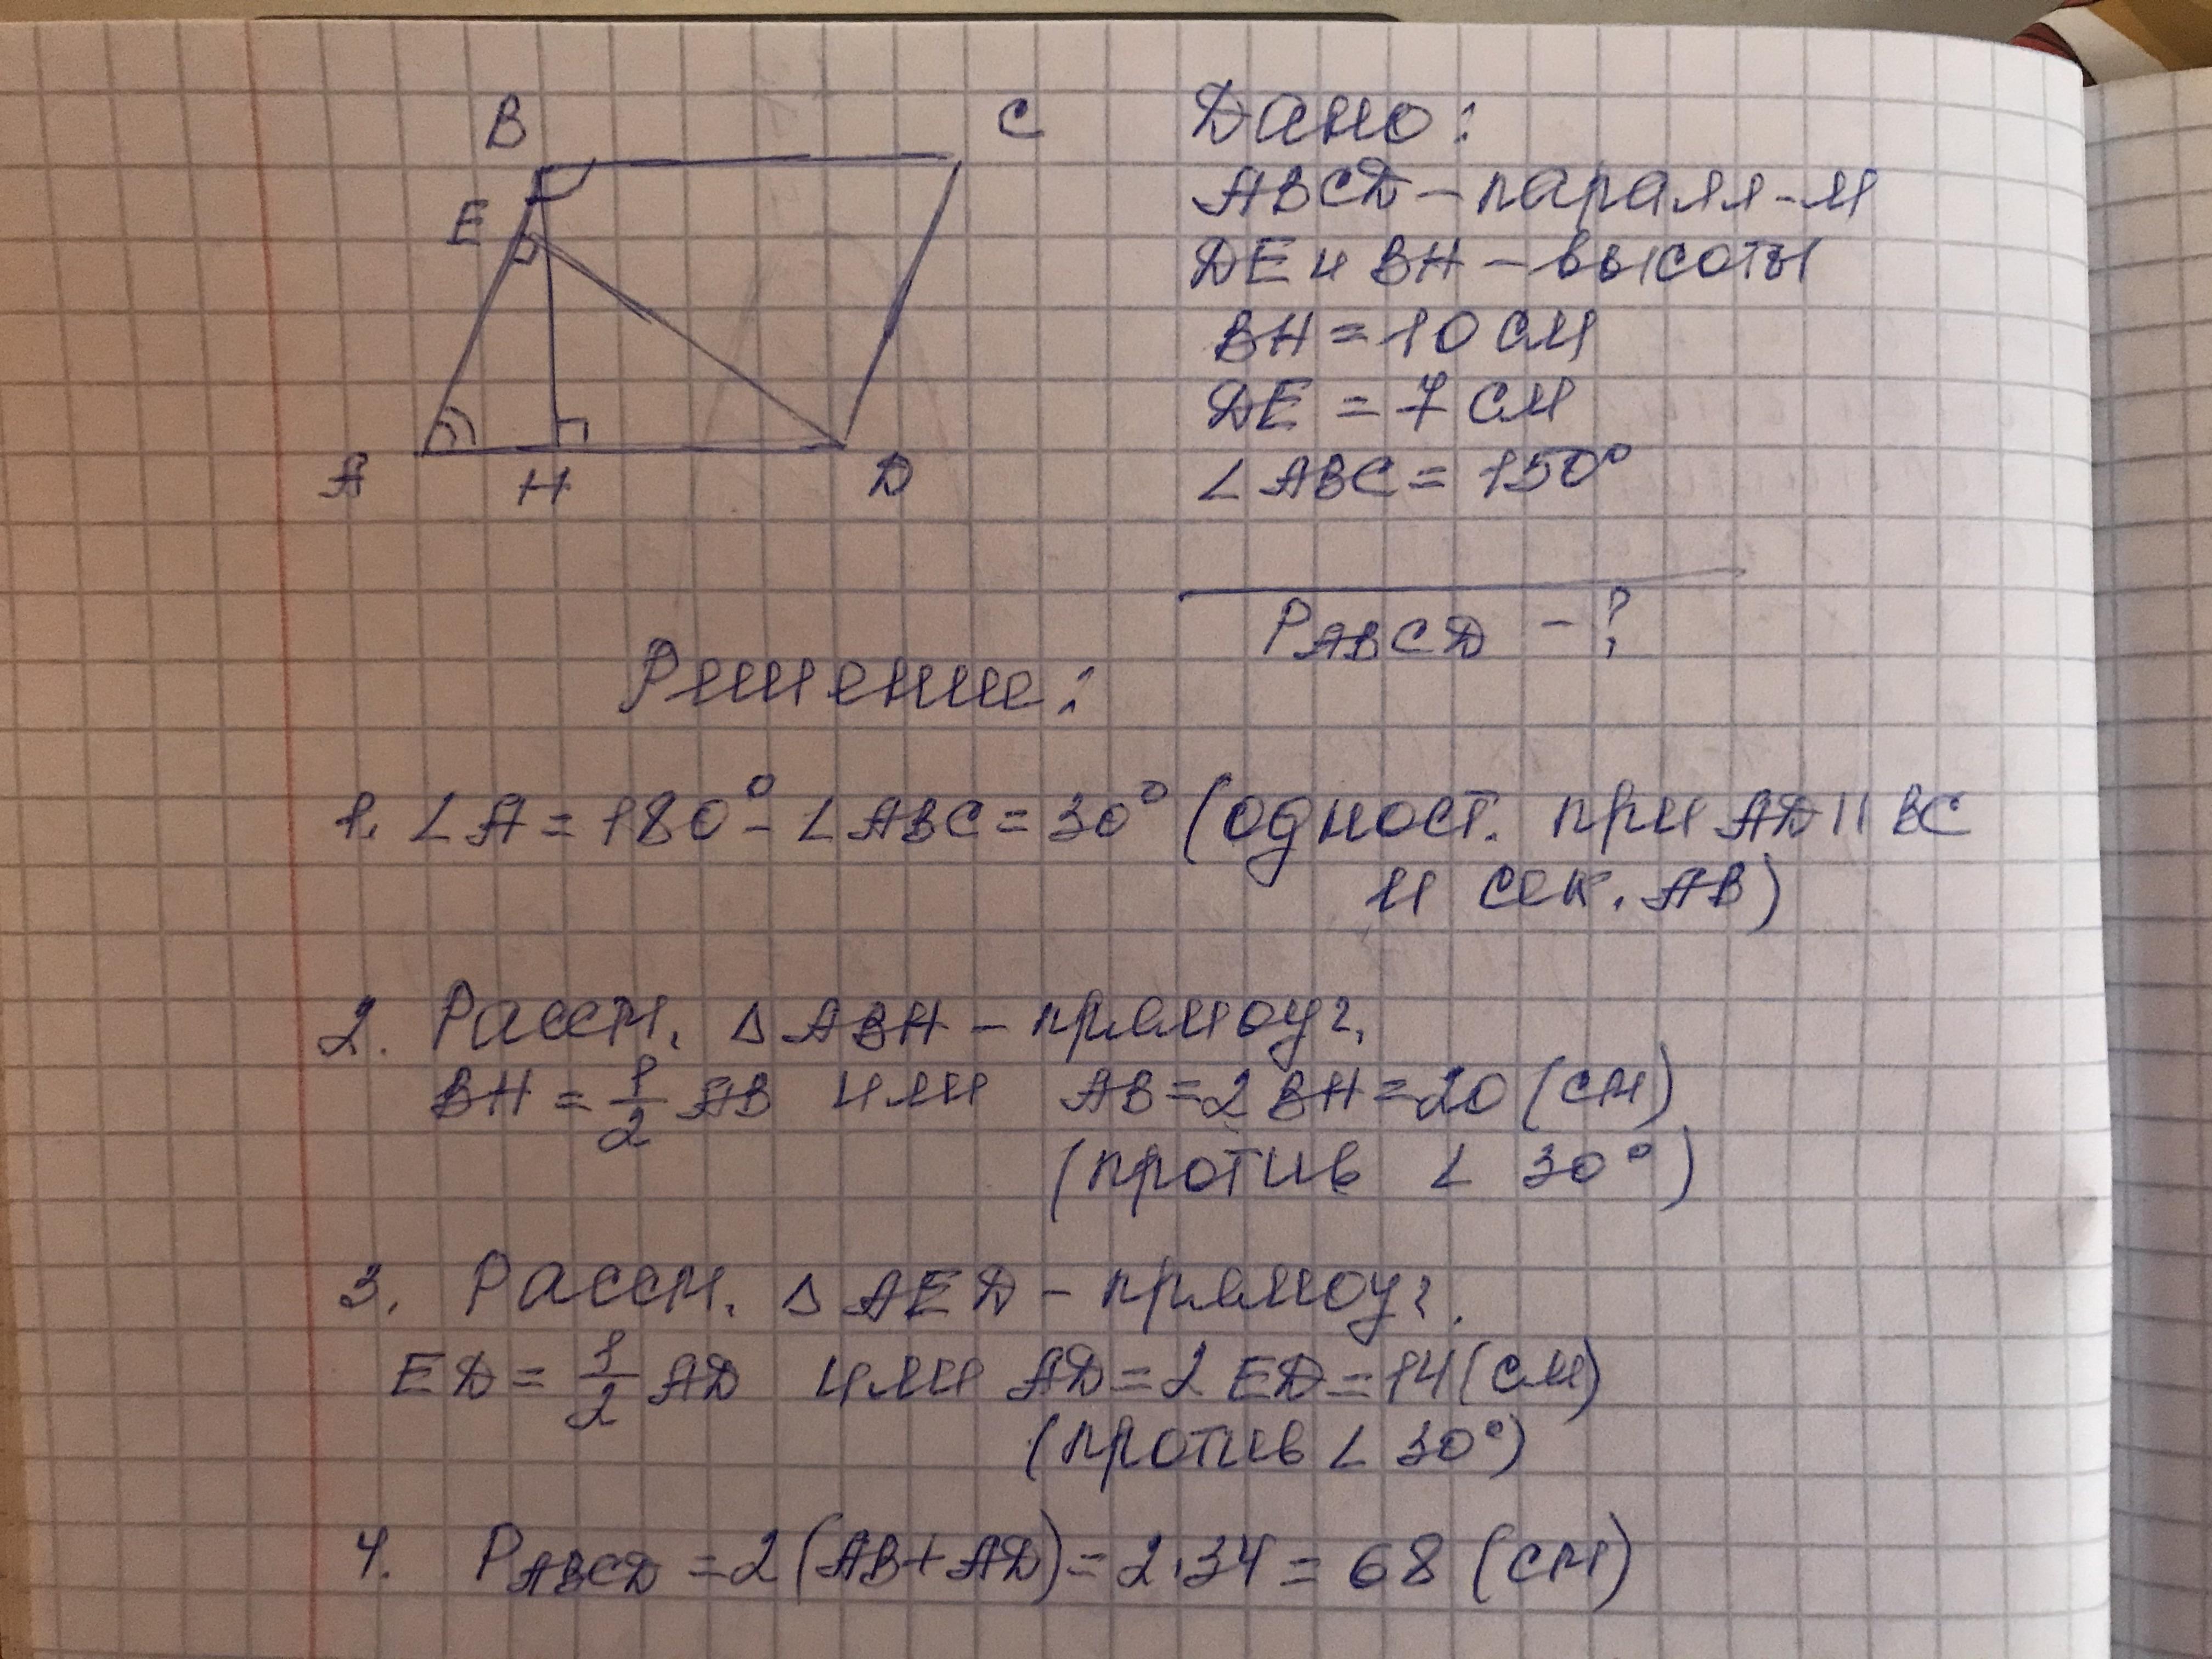 B
C
E
A
H
D
Дано:
ABCD - паралл-м
DE и BH - высоты
BH = 10 см
DE = 7 см
∠ABC = 150°
P_ABCD - ?
Решение:
1. ∠A = 180° - ∠ABC = 30° (одност. при AD || BC
и сек. AB)
2. Рассм. △ABH - прямоуг.
BH = 1/2 AB или AB = 2 BH = 20 (см)
(против ∠ 30°)
3. Рассм. △AED - прямоуг.
ED = 1/2 AD или AD = 2 ED = 14 (см)
(против ∠ 30°)
4. P_ABCD = 2 (AB + AD) = 2·34 = 68 (см)